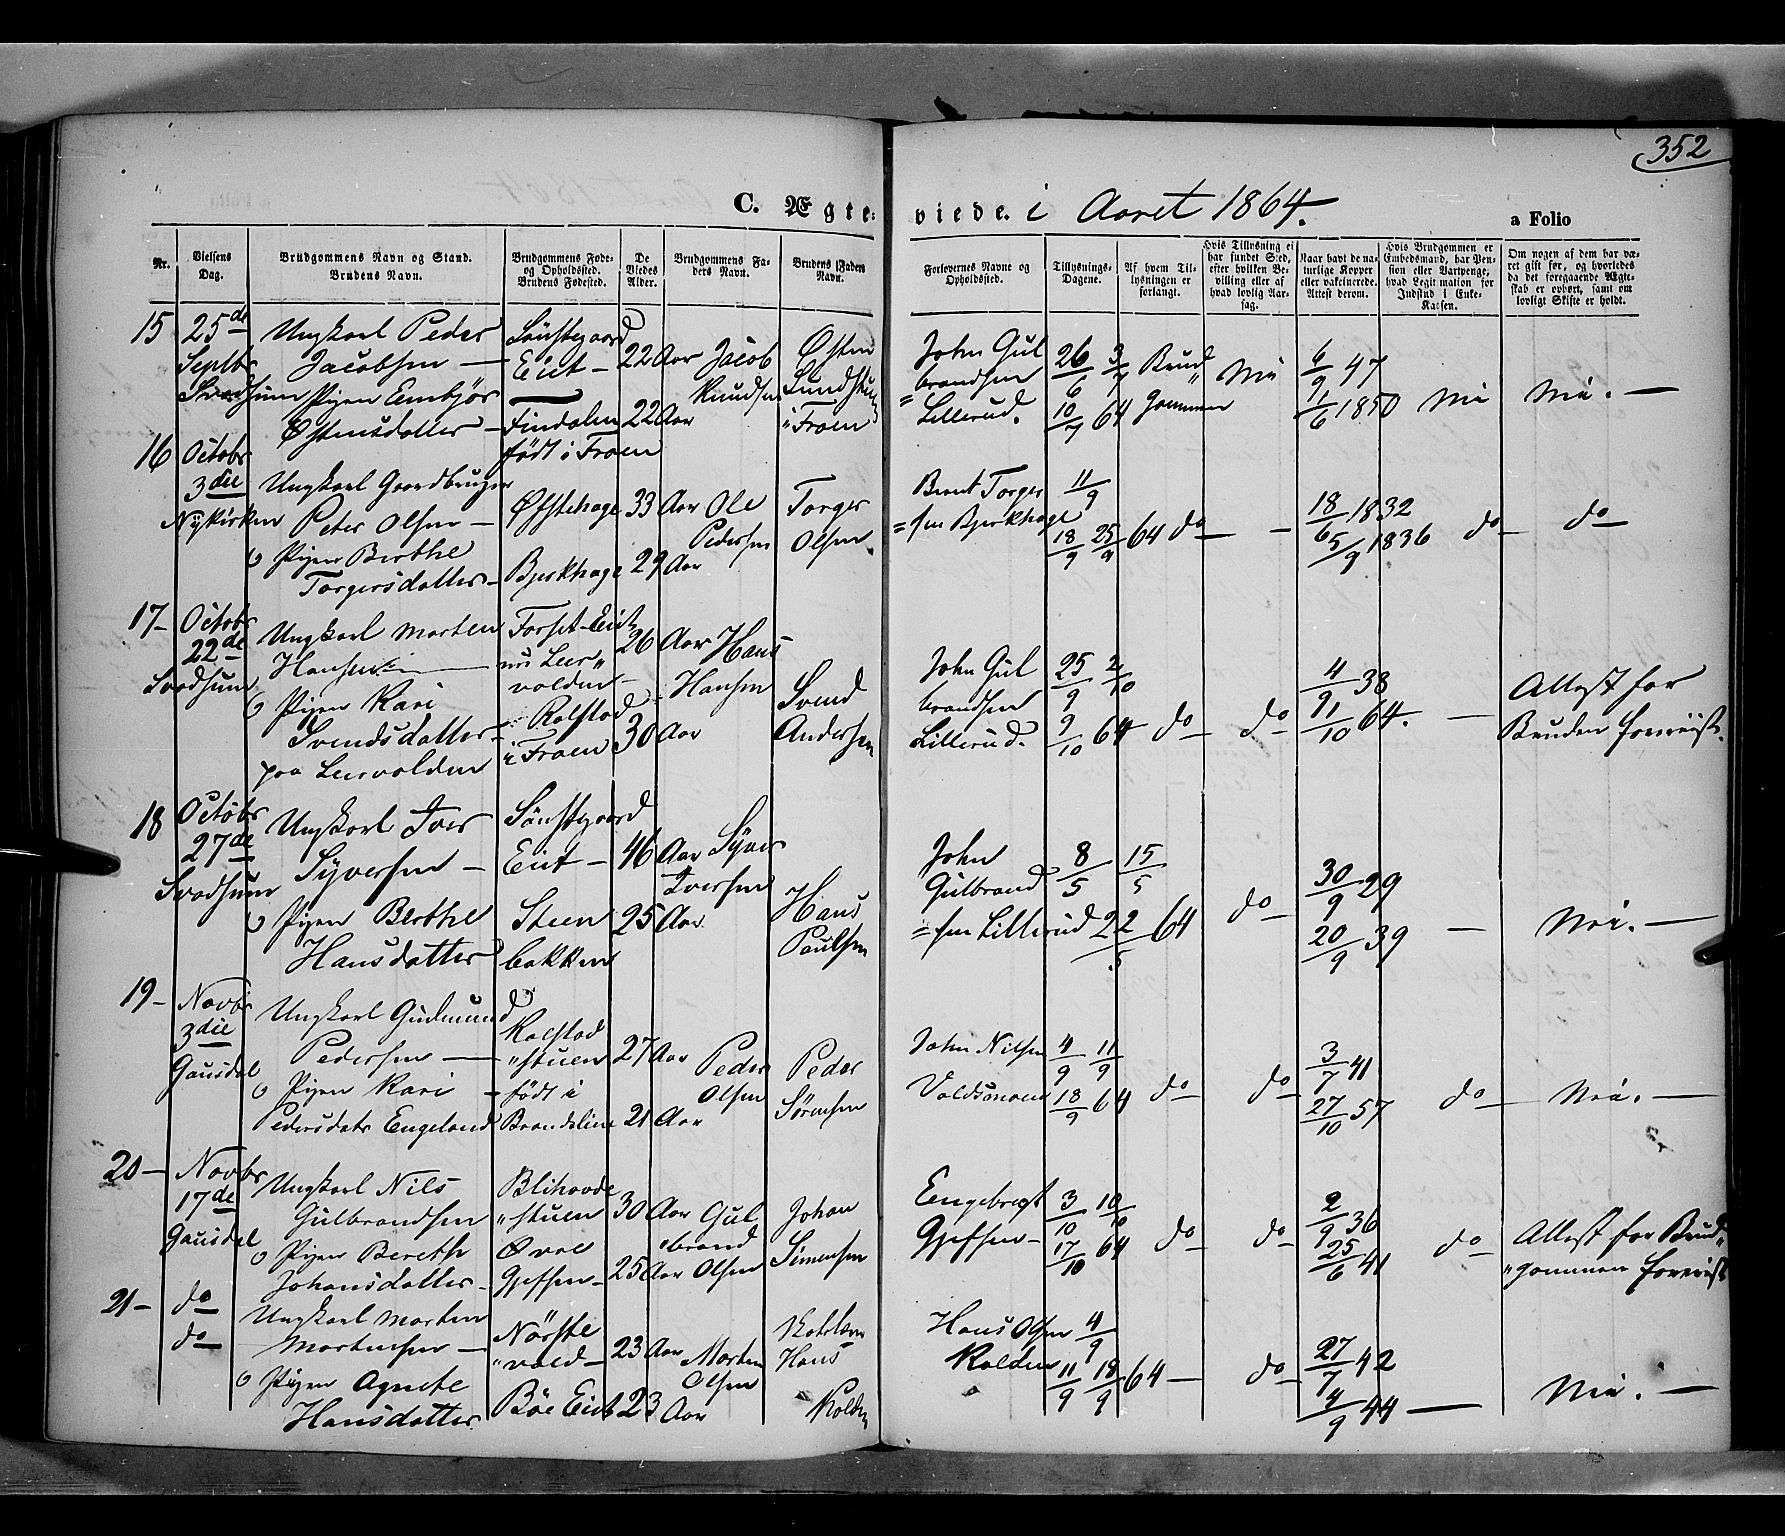 352
C. Ægte-viede. i Aaret 1864.
a Folio
Nr.
Vielsens Dag.
Brudgommens Navn og Stand. Brudens Navn.
Brudgommens Føde- og Opholdssted. Brudens Fødested.
De Viedes Alder.
Brudgommens Faders Navn.
Brudens Faders Navn.
Forlovernes Navne og Opholdssted.
Tillysnings-Dagene.
Af hvem Tillysningen er forlangt.
Hvis Tillysning ei har fundet Sted, efter hvilken Bevilling eller af hvad lovlig Aarsag.
Naar havt de naturlige Kopper eller vakcinerede. Attest derom.
Hvis Brudgommen er Embedsmand, har Pension eller Vartpenge, hvad Legitimation for Indskud i Enke-Kassen.
Om nogen af dem har været gift før, og hvorledes da det foregaaende Ægteskab er ophørt, samt om lovligt Skifte er holdt.
15 25de Septbr Svadsum
Ungkarl Peder Jacobsen —
Pigen Embjør Østensdatter —
Sønstegaard Eiet —
Findalen født i Froen
22 Aar
22 Aar
Jacob Knudsen
Østen Lundstuen i Froen
John Gulbrandsen Lillerud.
26/6 3/7 10/7 64
Brudgommen
Nei
6/9 47
1/6 1850
Nei
Nei. —
16 Octobr 3die Nykirken
Ungkarl Gaardbruger Peter Olsen —
Pigen Berthe Torgersdatter —
Øfstehage
Bjerkhage
33 Aar
29 Aar
Ole Pedersen
Torger Olsen.
Bernt Torgersen Bjerkhage
11/9 18/9 25/9 64
do —
18/6 1832
5/9 1836
do —
do
17 — Octobr 22de Svadsum
Ungkarl Morten Hansen —
Pigen Kari Svendsdatter — paa Leervolden
Forset-Eiet nu Leervolden —
Ralstad i Froen
26 Aar
30 Aar
Hans Hansen
Svend Andersen
John Gulbrandsen Lillerud.
25/9 2/10 9/10 64
do —
do —
4/9 38
11/10 64.
—
Attest for Bruden foreviist.
18 Octobr 27de Svadsum
Ungkarl Iver Syversen —
Pigen Berthe Hansdatter
Sønstegaard Eiet —
Steenbakken
46 Aar
25 Aar
Syver Iversen
Hans Paulsen
John Gulbrandsen Lillerud
8/5 15/5 22/5 64
do —
30/9 29
20/9 39
—
Nei. —
19 — Novbr 3die Gausdal
Ungkarl Gudmund Pedersen —
Pigen Kari Pedersdatr Engeland
Ralstadstuen —
født i
27 Aar
21 Aar
Peder Olsen
Peder Sørensen
John Nilsen
4/9 11/9 18/9 64
do
do —
3/7 41
27/10 57
do —
Nei. —
20 — Novbr 17de Gausdal
Ungkarl Nils Gulbrandsen
Pigen Berethe Johansdatter —
stuen
30 Aar
25 Aar
Gulbrand Olsen
Johan Simensen
Engebregt
3/10 10/10 17/10 64
do —
do —
2/9 36
25/6 41
do —
Attest for Brudgommen foreviist
21 — do do
Ungkarl Morten Mortensen —
Pigen Agnete Hansdatter
Nørstevold —
Bøe Eiet
23 Aar
23 Aar
Morten Olsen
Hans Kolden
Hans Olsen Kolden
4/9 11/9 18/9 64 —
do —
27/7 42
4/9 44
—
Nei. —